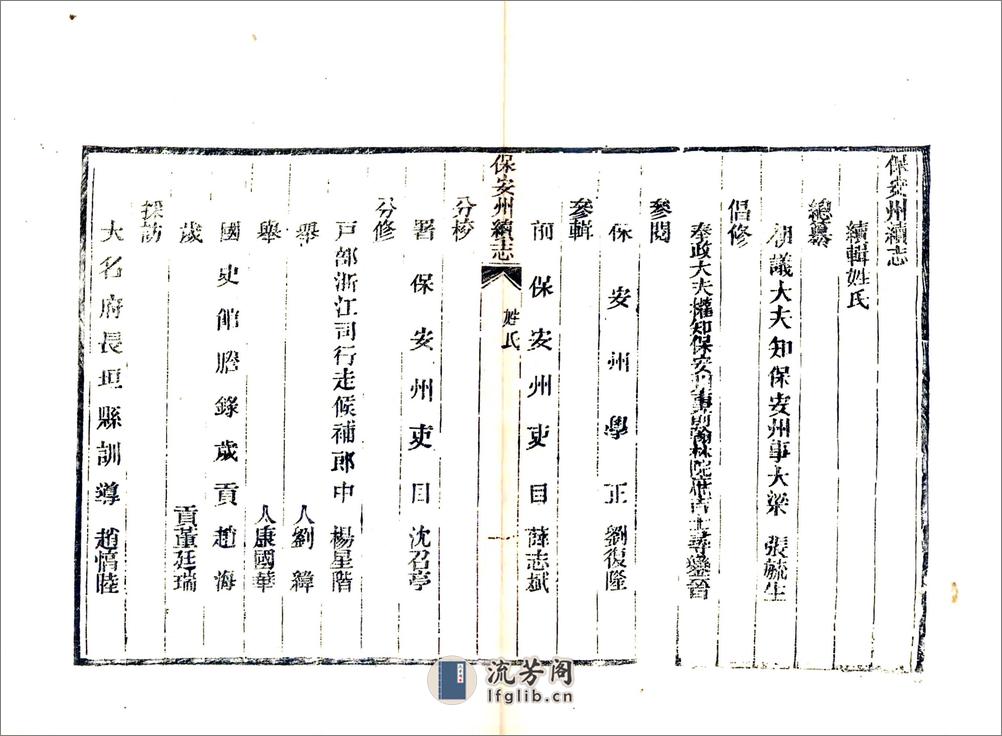 保安州續志
續輯姓氏
總纂
朝議大夫知保安州事大梁 張毓生
倡修
奉政大夫權知保安州事前翰林院庶吉士尋鑾晉
參閱
保安州學正 劉復隆
參輯
前保安州吏目 薛志斌
保安州續志
姓氏
一
分校
署保安州吏目 沈召亭
分修
戶部浙江司行走候補郎中 楊星階
舉人劉緯
舉人康國華
國史館謄錄歲貢趙海
歲貢董廷瑞
採訪
大名府長垣縣訓導 趙惰陸
流芳阁
lfglib.cn